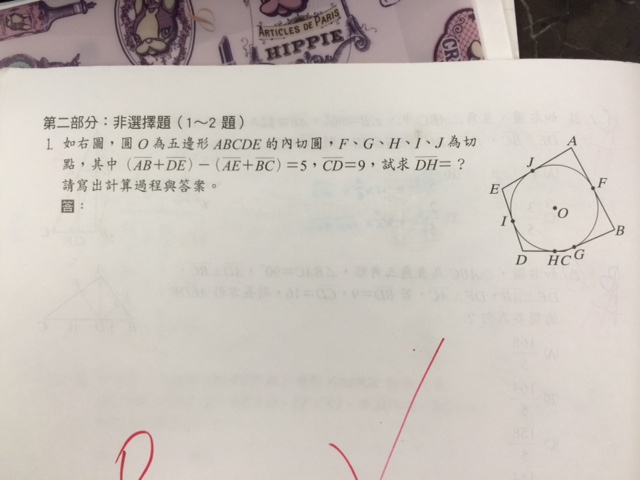 ARTICLES DE PARIS
HIPPIE
第二部分：非選擇題（1～2 題）
1. 如右圖，圓 O 為五邊形 ABCDE 的內切圓，F、G、H、I、J 為切
點，其中（AB+DE）－（AE+BC）=5，CD=9，試求 DH=？
請寫出計算過程與答案。
答：
A
J
E
F
O
I
B
D
H C G